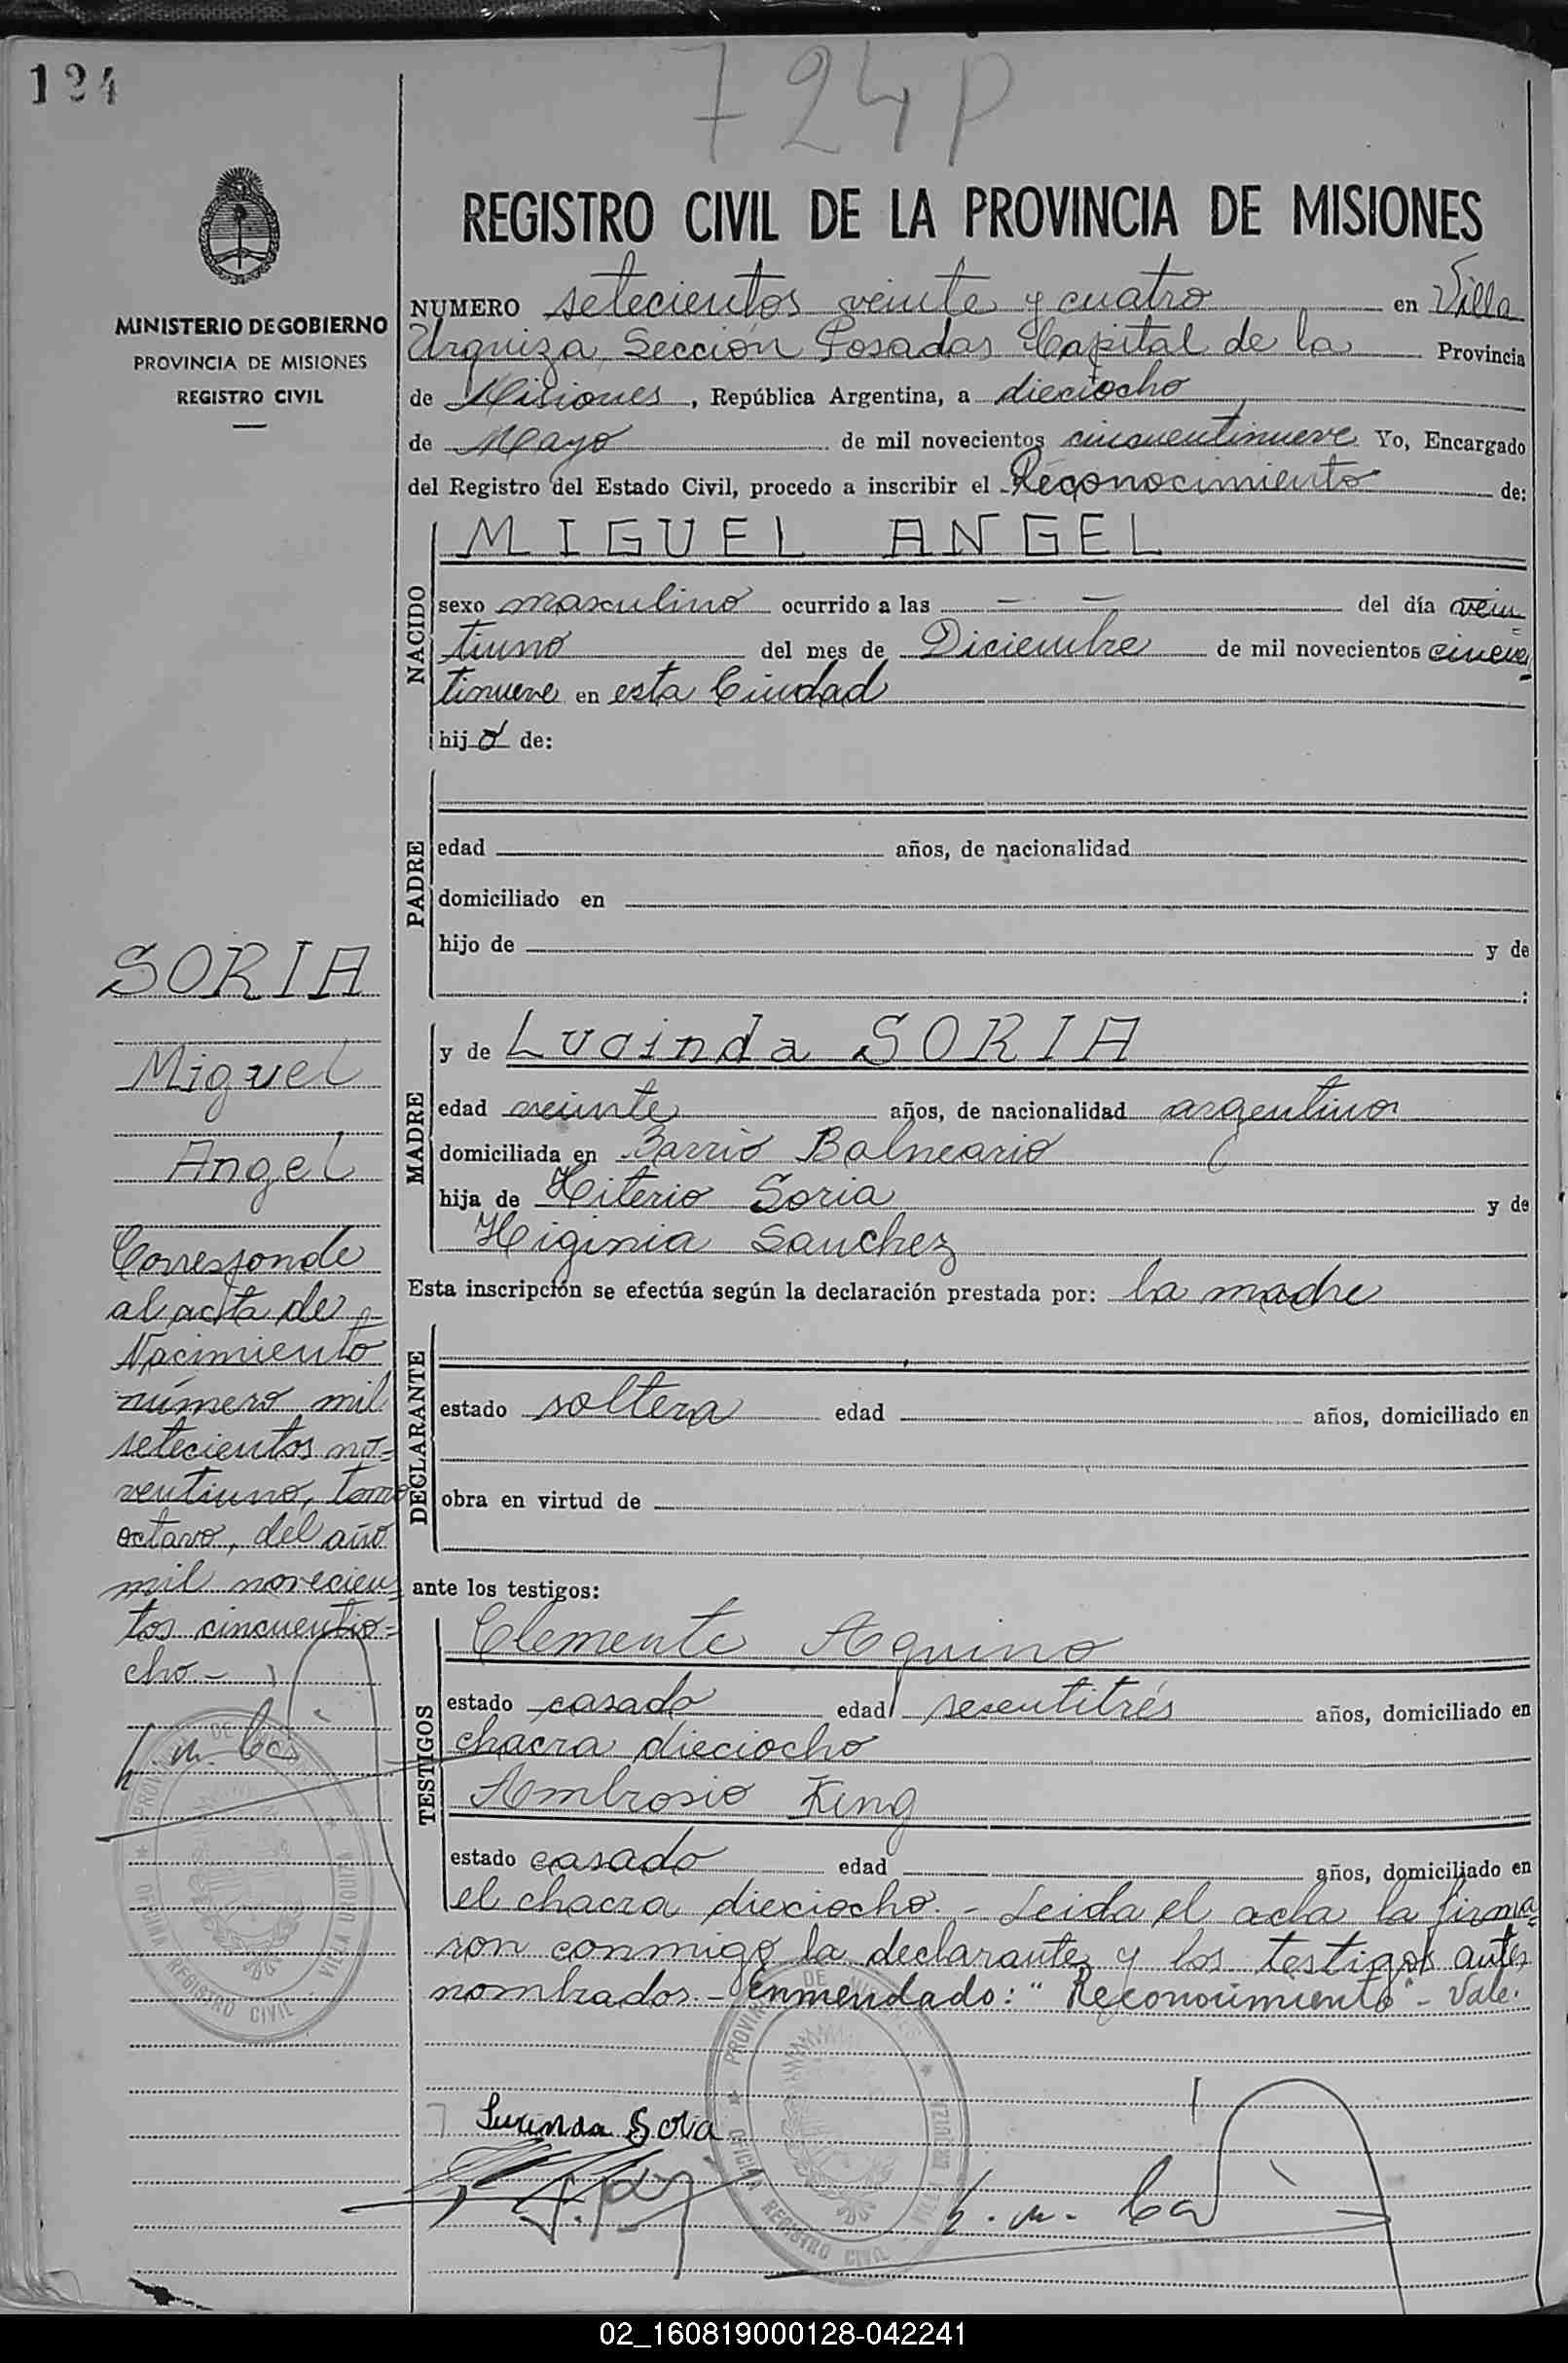 124
724P
MINISTERIO DE GOBIERNO
PROVINCIA DE MISIONES
REGISTRO CIVIL
REGISTRO CIVIL DE LA PROVINCIA DE MISIONES
NUMERO setecientos veinte y cuatro en Villa
Urquiza, Sección Posadas Capital de la Provincia
de Misiones, República Argentina, a dieciocho
de Mayo de mil novecientos cincuentinueve Yo, Encargado
del Registro del Estado Civil, procedo a inscribir el Reconocimiento de:
NACIDO
MIGUEL ANGEL
sexo masculino ocurrido a las — — del día vein=
tiuno del mes de Diciembre de mil novecientos cincuen
tinueve en esta Ciudad
hijo de:
PADRE
edad años, de nacionalidad
domiciliado en
hijo de y de
:
MADRE
y de Lucinda SORIA
edad veinte años, de nacionalidad argentina
domiciliada en Barrio Balneario
hija de Hiterio Soria y de
Higinia Sanchez
Esta inscripción se efectúa según la declaración prestada por: la madre
DECLARANTE
estado soltera edad años, domiciliado en
obra en virtud de
ante los testigos:
TESTIGOS
Clemente Aquino
estado casado edad sesentitrés años, domiciliado en
chacra dieciocho
Ambrosio King
estado casado edad años, domiciliado en
el chacra dieciocho. - Leida el acta la firma=
ron conmigo la declarante y los testigos antes
nombrados. - Enmendado: "Reconocimiento" - Vale.
Lucinda Soria
SORIA
Miguel
Angel
Corresponde
al acta de
Nacimiento
número mil
setecientos no=
ventiuno, tomo
octavo, del año
mil novecien=
tos cincuentio=
cho. -
PROVINCIA DE MISIONES
OFICINA REGISTRO CIVIL - VILLA URQUIZA
PROVINCIA DE MISIONES
OFICINA REGISTRO CIVIL - VILLA URQUIZA
02_160819000128-042241